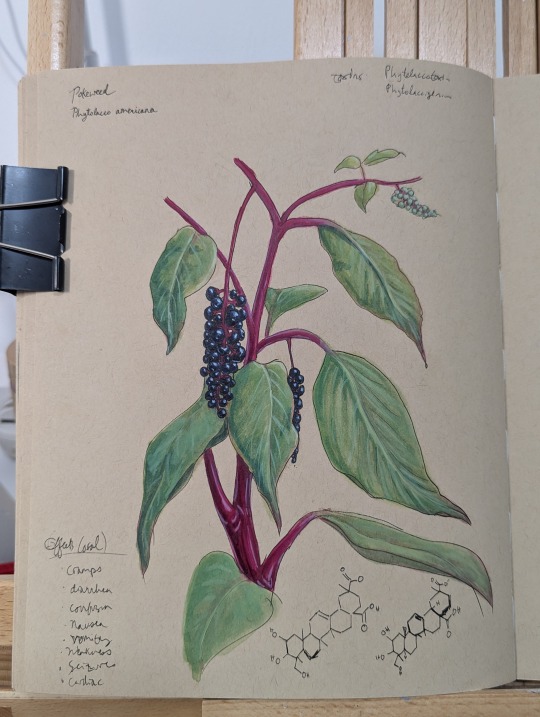 Pokeweed
Phytolacca americana
toxins
Phytolaccatoxin
Phytolaccigenin
Effects (oral)
· cramps
· diarrhea
· confusion
· nausea
· vomiting
· weakness
· seizures
· cardiac